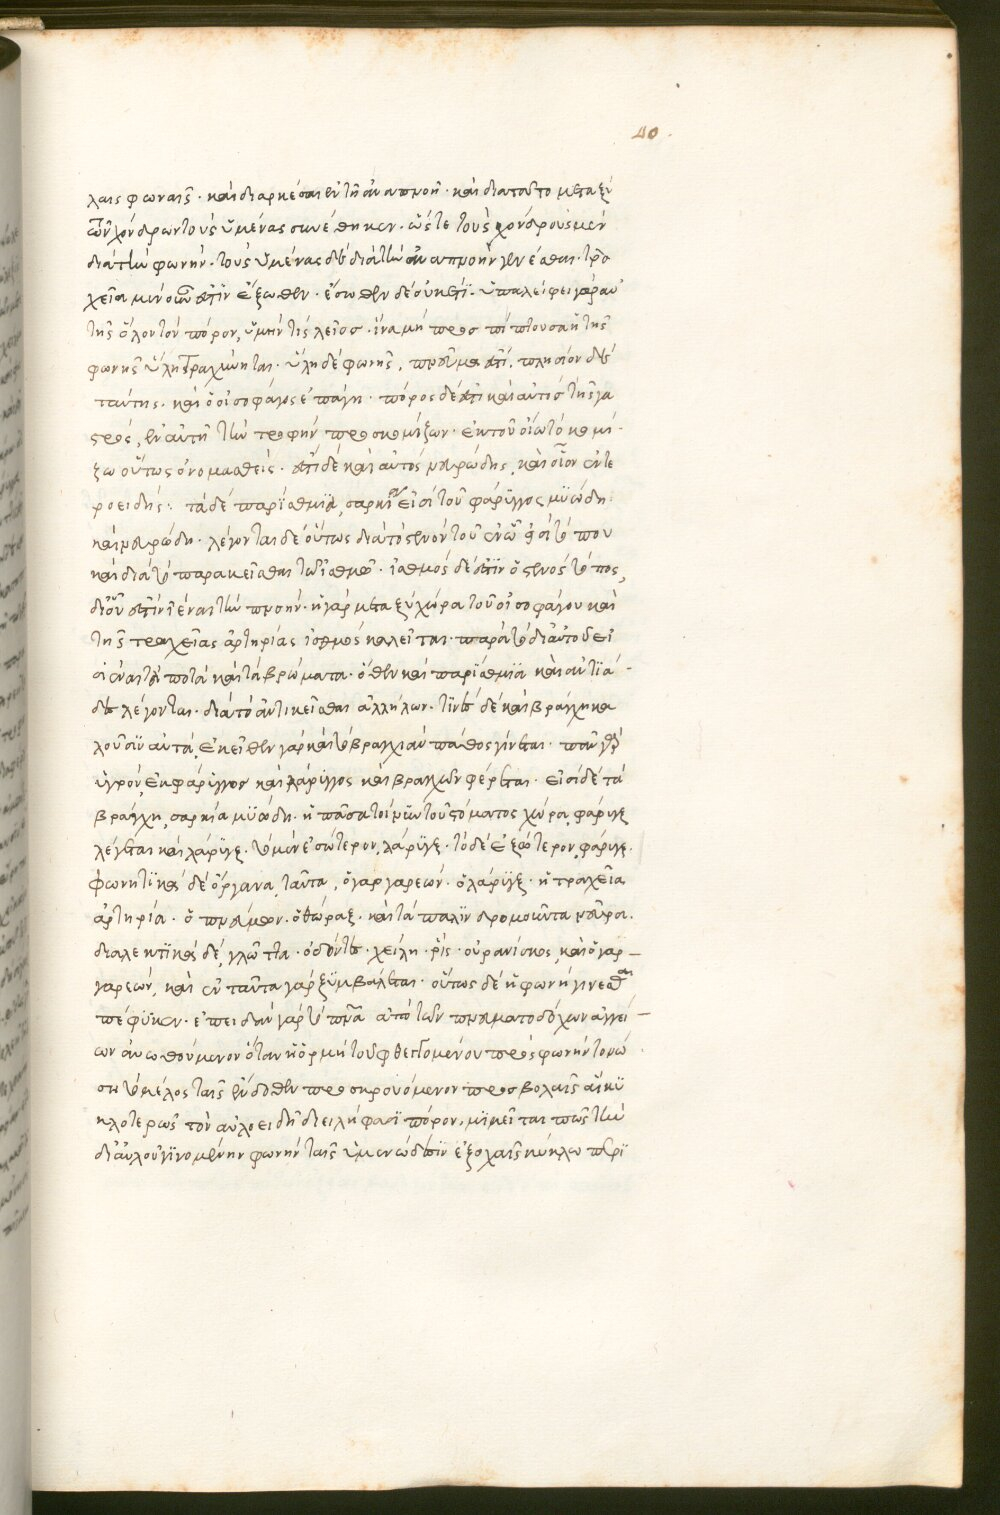 40
λαις φωναῖς· καὶ διαρκέσαι ἐν τῆ ἀναπνοῆ· καὶ διατοῦτο μεταξὺ
τῶν χόνδρων τοὺς ὑμένας συνέθηκεν· ὥστε τοὺς χόνδρους μὲν
διὰ τὴν φωνήν· τοὺς ὑμένας δὲ διὰ τὴν ἀναπνοὴν γενέσθαι· τρα
χεῖα μὲν οὖν ἐστὶν ἔξωθεν· ἔσωθεν δὲ οὐκέτι· ὑπαλείφει γὰρ αὐ
τῆς ὅλον τὸν πόρον, ὑμήν τις λεῖος· ἵνα μὴ προσπίπτουσα ἡ τῆς
φωνῆς ὕλη τραχύνηται· ὕλη δὲ φωνῆς, πνεῦμα ἐστί· πλησίον δὲ
ταύτης· καὶ ὁ οἰσοφάγος ἐπάγη· πόρος δέ ἐστι καὶ αὐτὸς τῆς γα
στρός, ἐν αὐτῆ τὴν τροφὴν προσκομίζων· ἐκ τοῦ οἴω τὸ κομί
ζω οὕτως ὀνομασθείς· ἐστὶ δὲ καὶ αὐτὸς νευρώδης, καὶ οἷον ἐντε
ροειδής: τὰ δὲ παρίσθμια, σαρκία εἰσὶ τοῦ φάρυγγος μυώδη
καὶ νευρώδη· λέγονται δὲ οὕτως διὰ τὸ στενὸν τοῦ ἐν ᾧ εἰσὶ τόπου
καὶ διὰ τὸ παρακεῖσθαι τῶ ἰσθμῶ· ἰσθμὸς δέ ἐστιν ὁ στενὸς τόπος,
δι' οὗ ἐστὶν ἰέναι τὴν πνοήν· ἡ γὰρ μεταξὺ χώρα τοῦ οἰσοφάγου καὶ
τῆς τραχείας ἀρτηρίας ἰσθμὸς καλεῖται· παρὰ τὸ δι' αὐτοῦ εἰ
σιέναι τὰ ποτὰ καὶ τὰ βρώματα· ὅθεν καὶ παρίσθμια καὶ ἀντιά
δες λέγονται· διὰ τὸ ἀντικεῖσθαι ἀλλήλων· τινὲς δὲ καὶ βράγχη κα
λοῦσιν αὐτά, ἐκεῖθεν γὰρ καὶ τὸ βραγχιᾶν πάθος γίνεται· πᾶν γὰρ
ὑγρὸν, ἐκ φάρυγγος καὶ λάρυγγος καὶ βραγχῶν φέρεται· εἰσὶ δὲ τὰ
βράγχη, σαρκία μυώδη· ἡ πᾶσα τοίνυν τοῦ στόματος χώρα, φάρυγξ
λέγεται καὶ λάρυγξ· τὸ μὲν ἐσώτερον, λάρυγξ· τὸ δὲ ἐξώτερον, φάρυγξ·
φωνητικὰ δὲ ὄργανα, ταῦτα, ὁ γαργαρεών· ὁ λάρυγξ· ἡ τραχεῖα
ἀρτηρία· ὁ πνεύμων· ὁ θώραξ· καὶ τὰ παλινδρομοῦντα νεῦρα·
διαλεκτικὰ δέ, γλῶττα· ὀδόντες· χείλη· ῥίς· οὐρανίσκος, καὶ ὁ γαρ
γαρεών, καὶ ἐνταῦτα γὰρ ξυμβάλεται· οὕτως δὲ ἡ φωνὴ γίνεσθαι
πέφυκεν· ἐπειδὰν γὰρ τὸ πνεῦμα ἀπὸ τῶν πνευματοδόχων ἀγγεί
ων ἀνωθούμενον ὅταν ἡ ὁρμὴ τοῦ φθεγγομένου πρὸς φωνὴν τονώ
ση τὸ μέλος ταῖς ἔνδοθεν προσκρουόμενον προσβολαῖς αἳ κυ
κλοτερῶς τὸν αὐλοειδῆ διειλήφασι πόρον, μιμεῖται πῶς τὴν
δι' αὐλοῦ γινομένην φωνὴν ταῖς ὑμενώδεσιν ἐξοχαῖς κύκλω περι